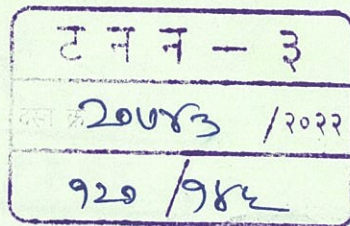 ट न न - ३
दस्त क्र २०७४३ /२०२२
१२० /१४६